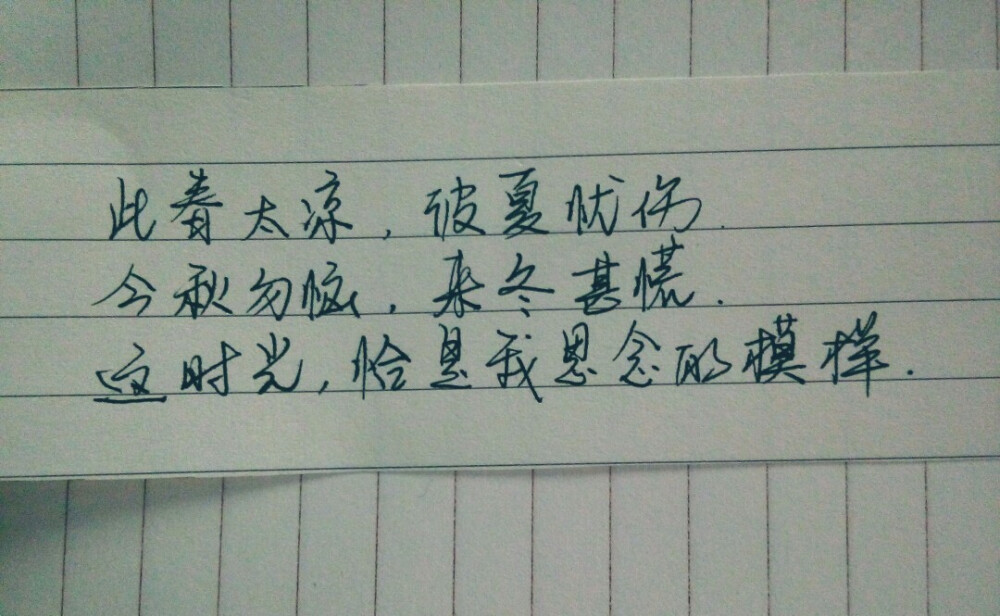 此春太凉，彼夏忧伤.
今秋勿恼，来冬甚慌.
这时光，恰是我思念的模样.